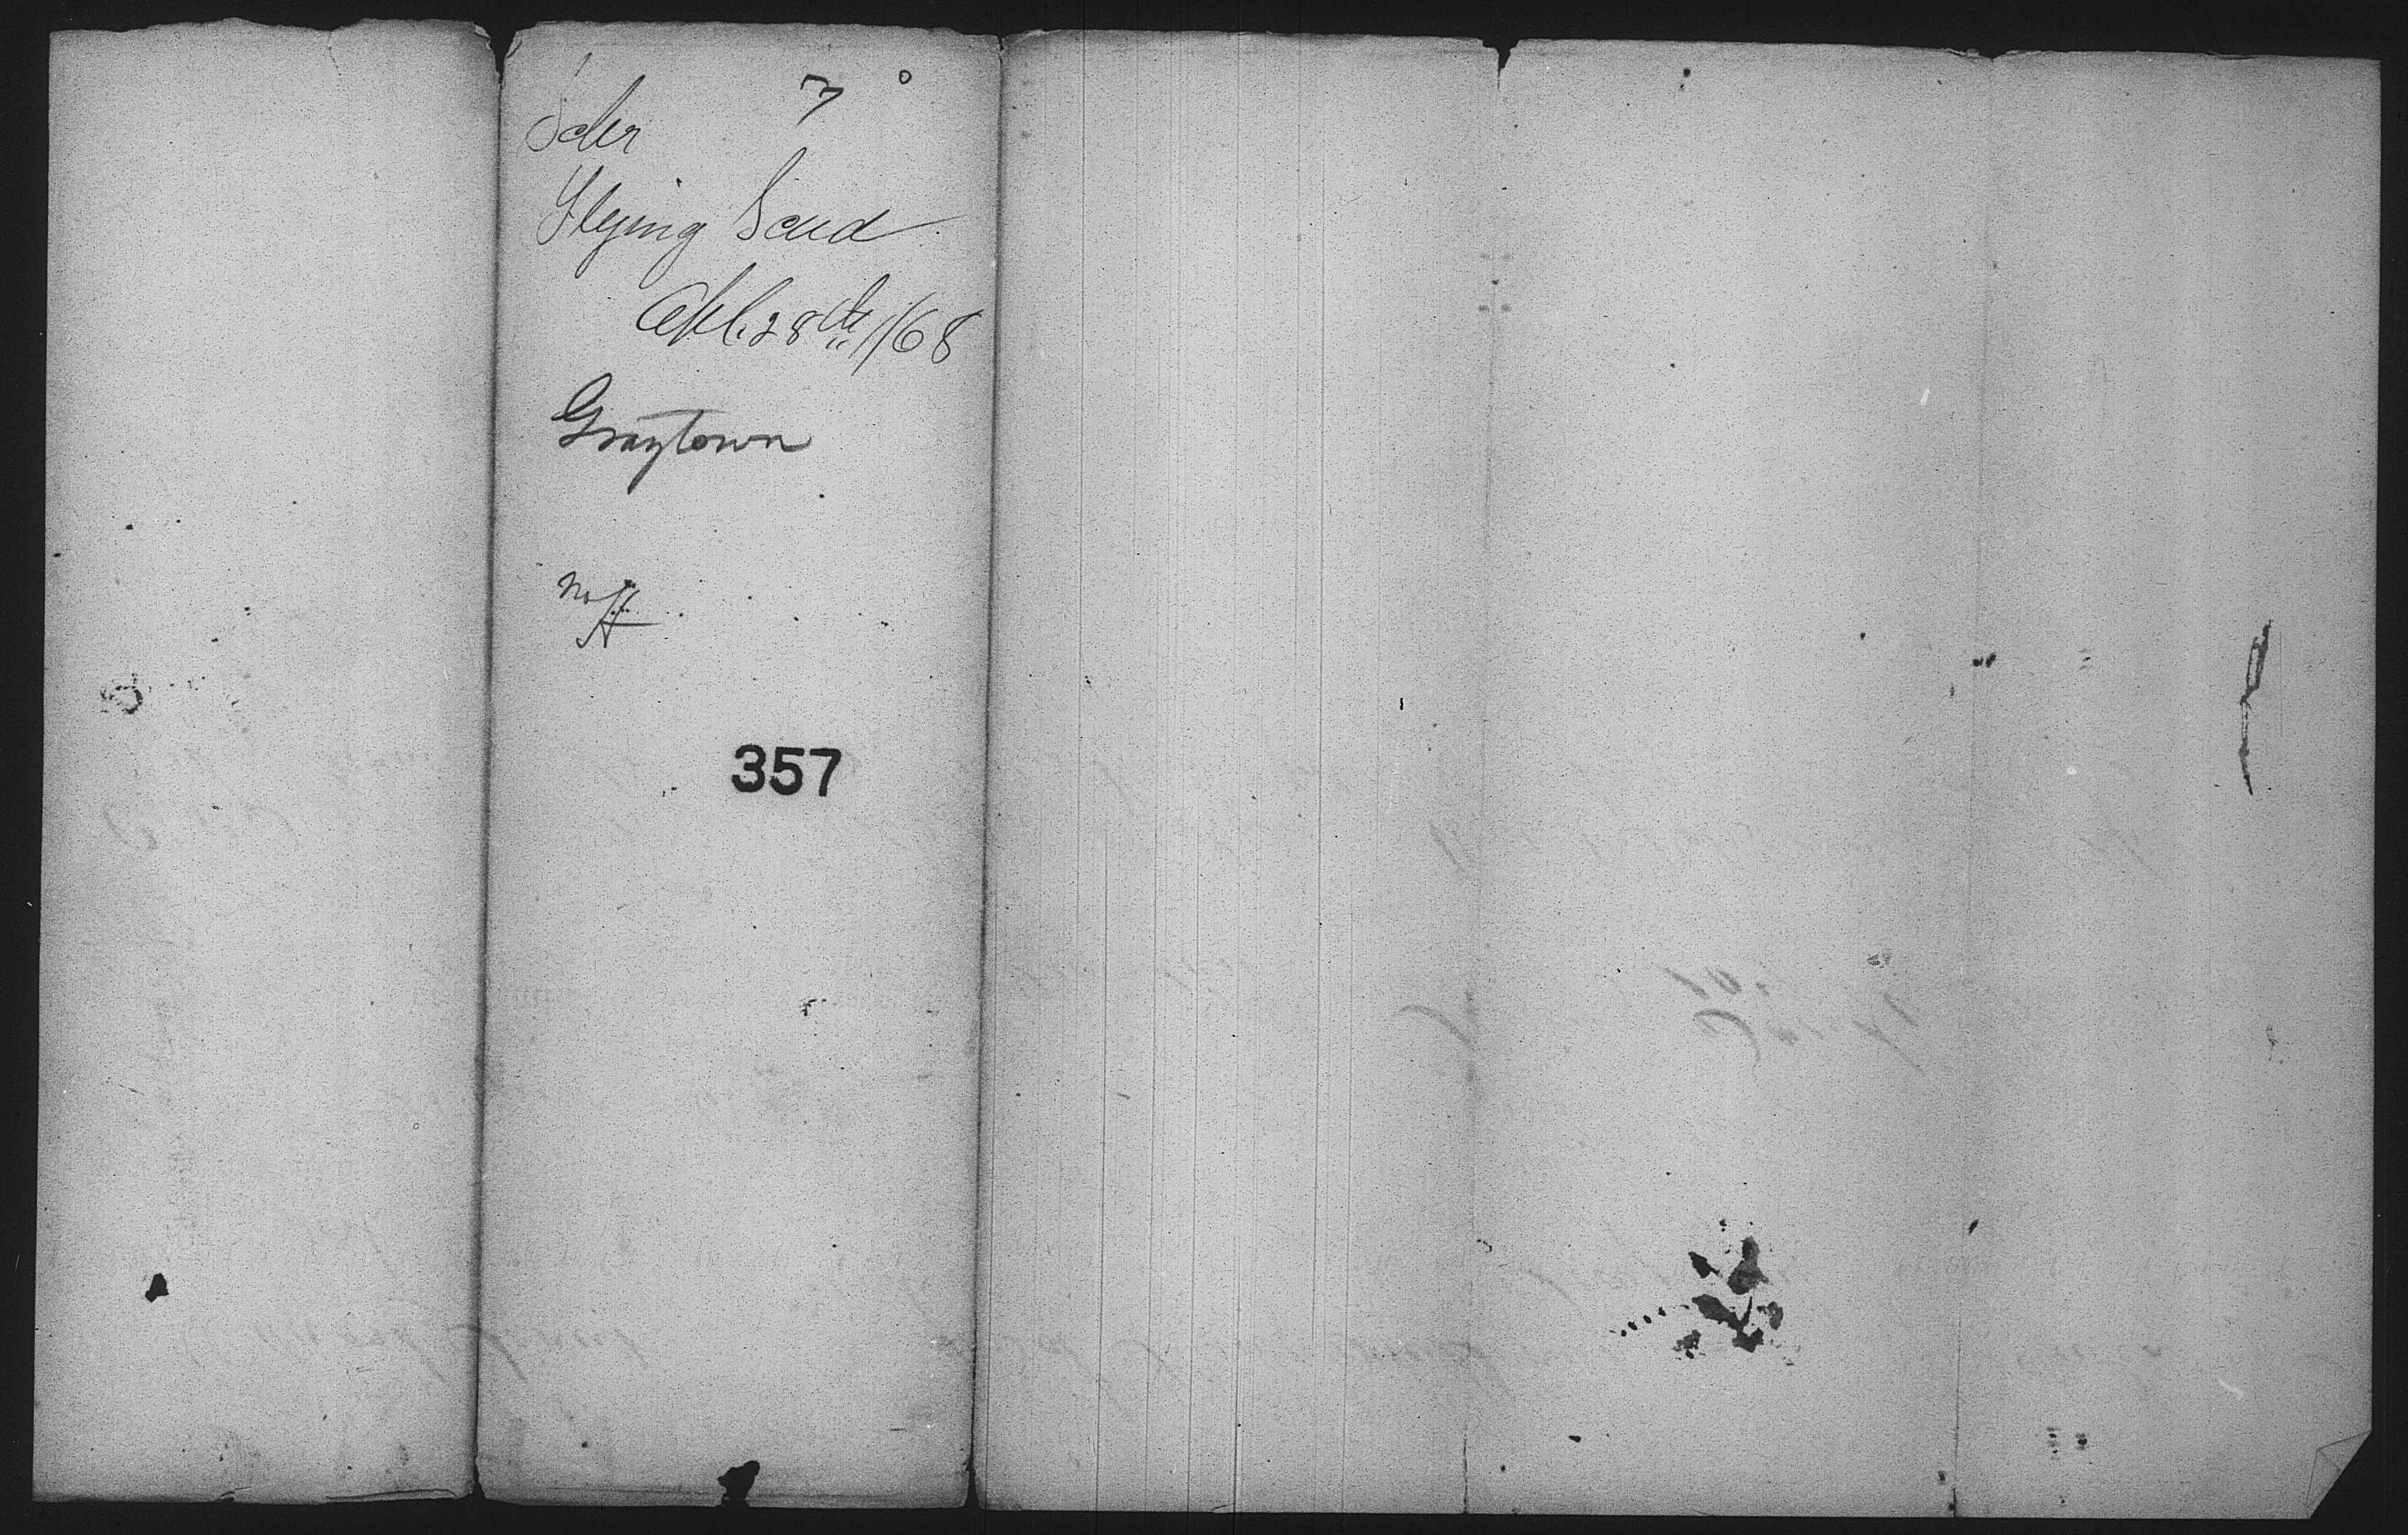 7
Schr
Flying Scud
Apl. 28th /68
Graytown
No H
357